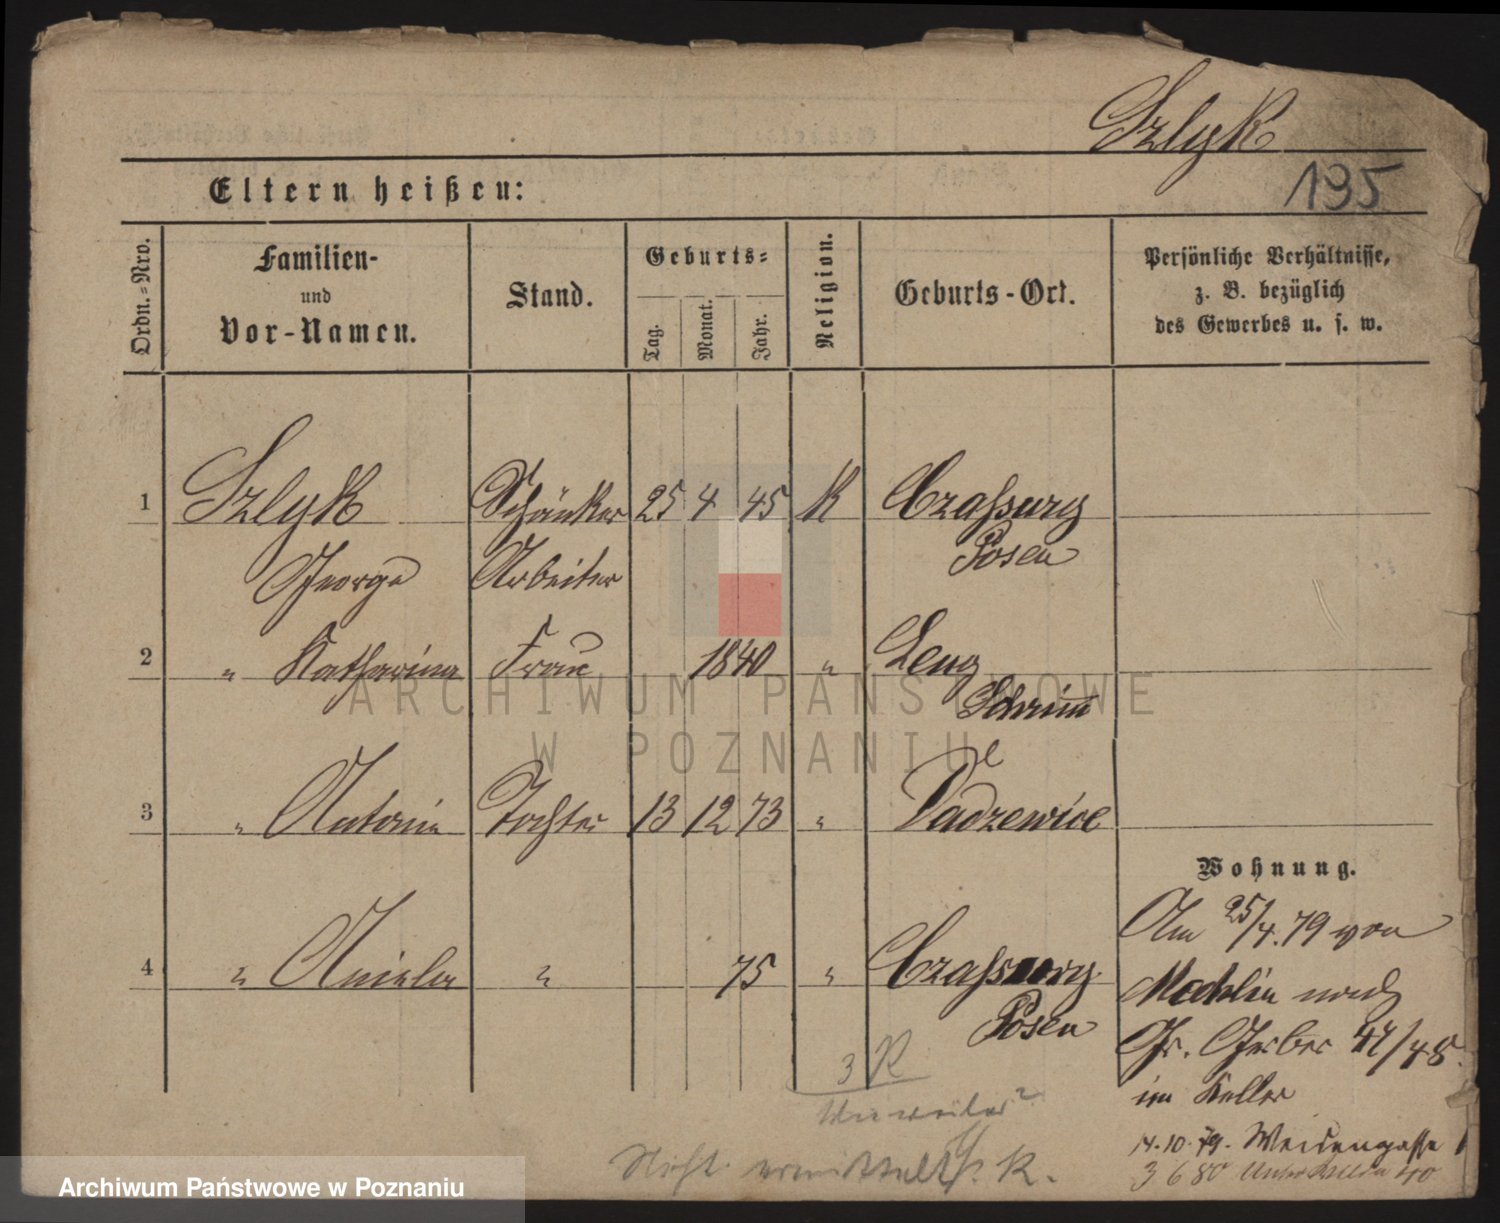 Szlyk
195
Eltern heißen:
Ordn.=Nro.
Familien-
und
Vor-Namen.
Stand.
Geburts=
Tag.
Monat.
Jahr.
Religion.
Geburts-Ort.
Persönliche Verhältnisse,
z. B. bezüglich
des Gewerbes u. s. w.
1 Szlyk Schänker 25 4 45 K
Posen
George Arbeiter
2 " Katharina Frau 1840 "
Schrimm
3 " Antonie Tochter 13 12 73 "
4 " Aniela " 75 "
Posen
Wohnung.
Am 25/4. 79 von
Mechlin nach
Gr. Gerber 47/48.
im Keller
14.10.79. Weidengasse
3 6 80
3 K
Nicht ermittelt
ARCHIWUM PAŃSTWOWE
W POZNANIU
Archiwum Państwowe w Poznaniu